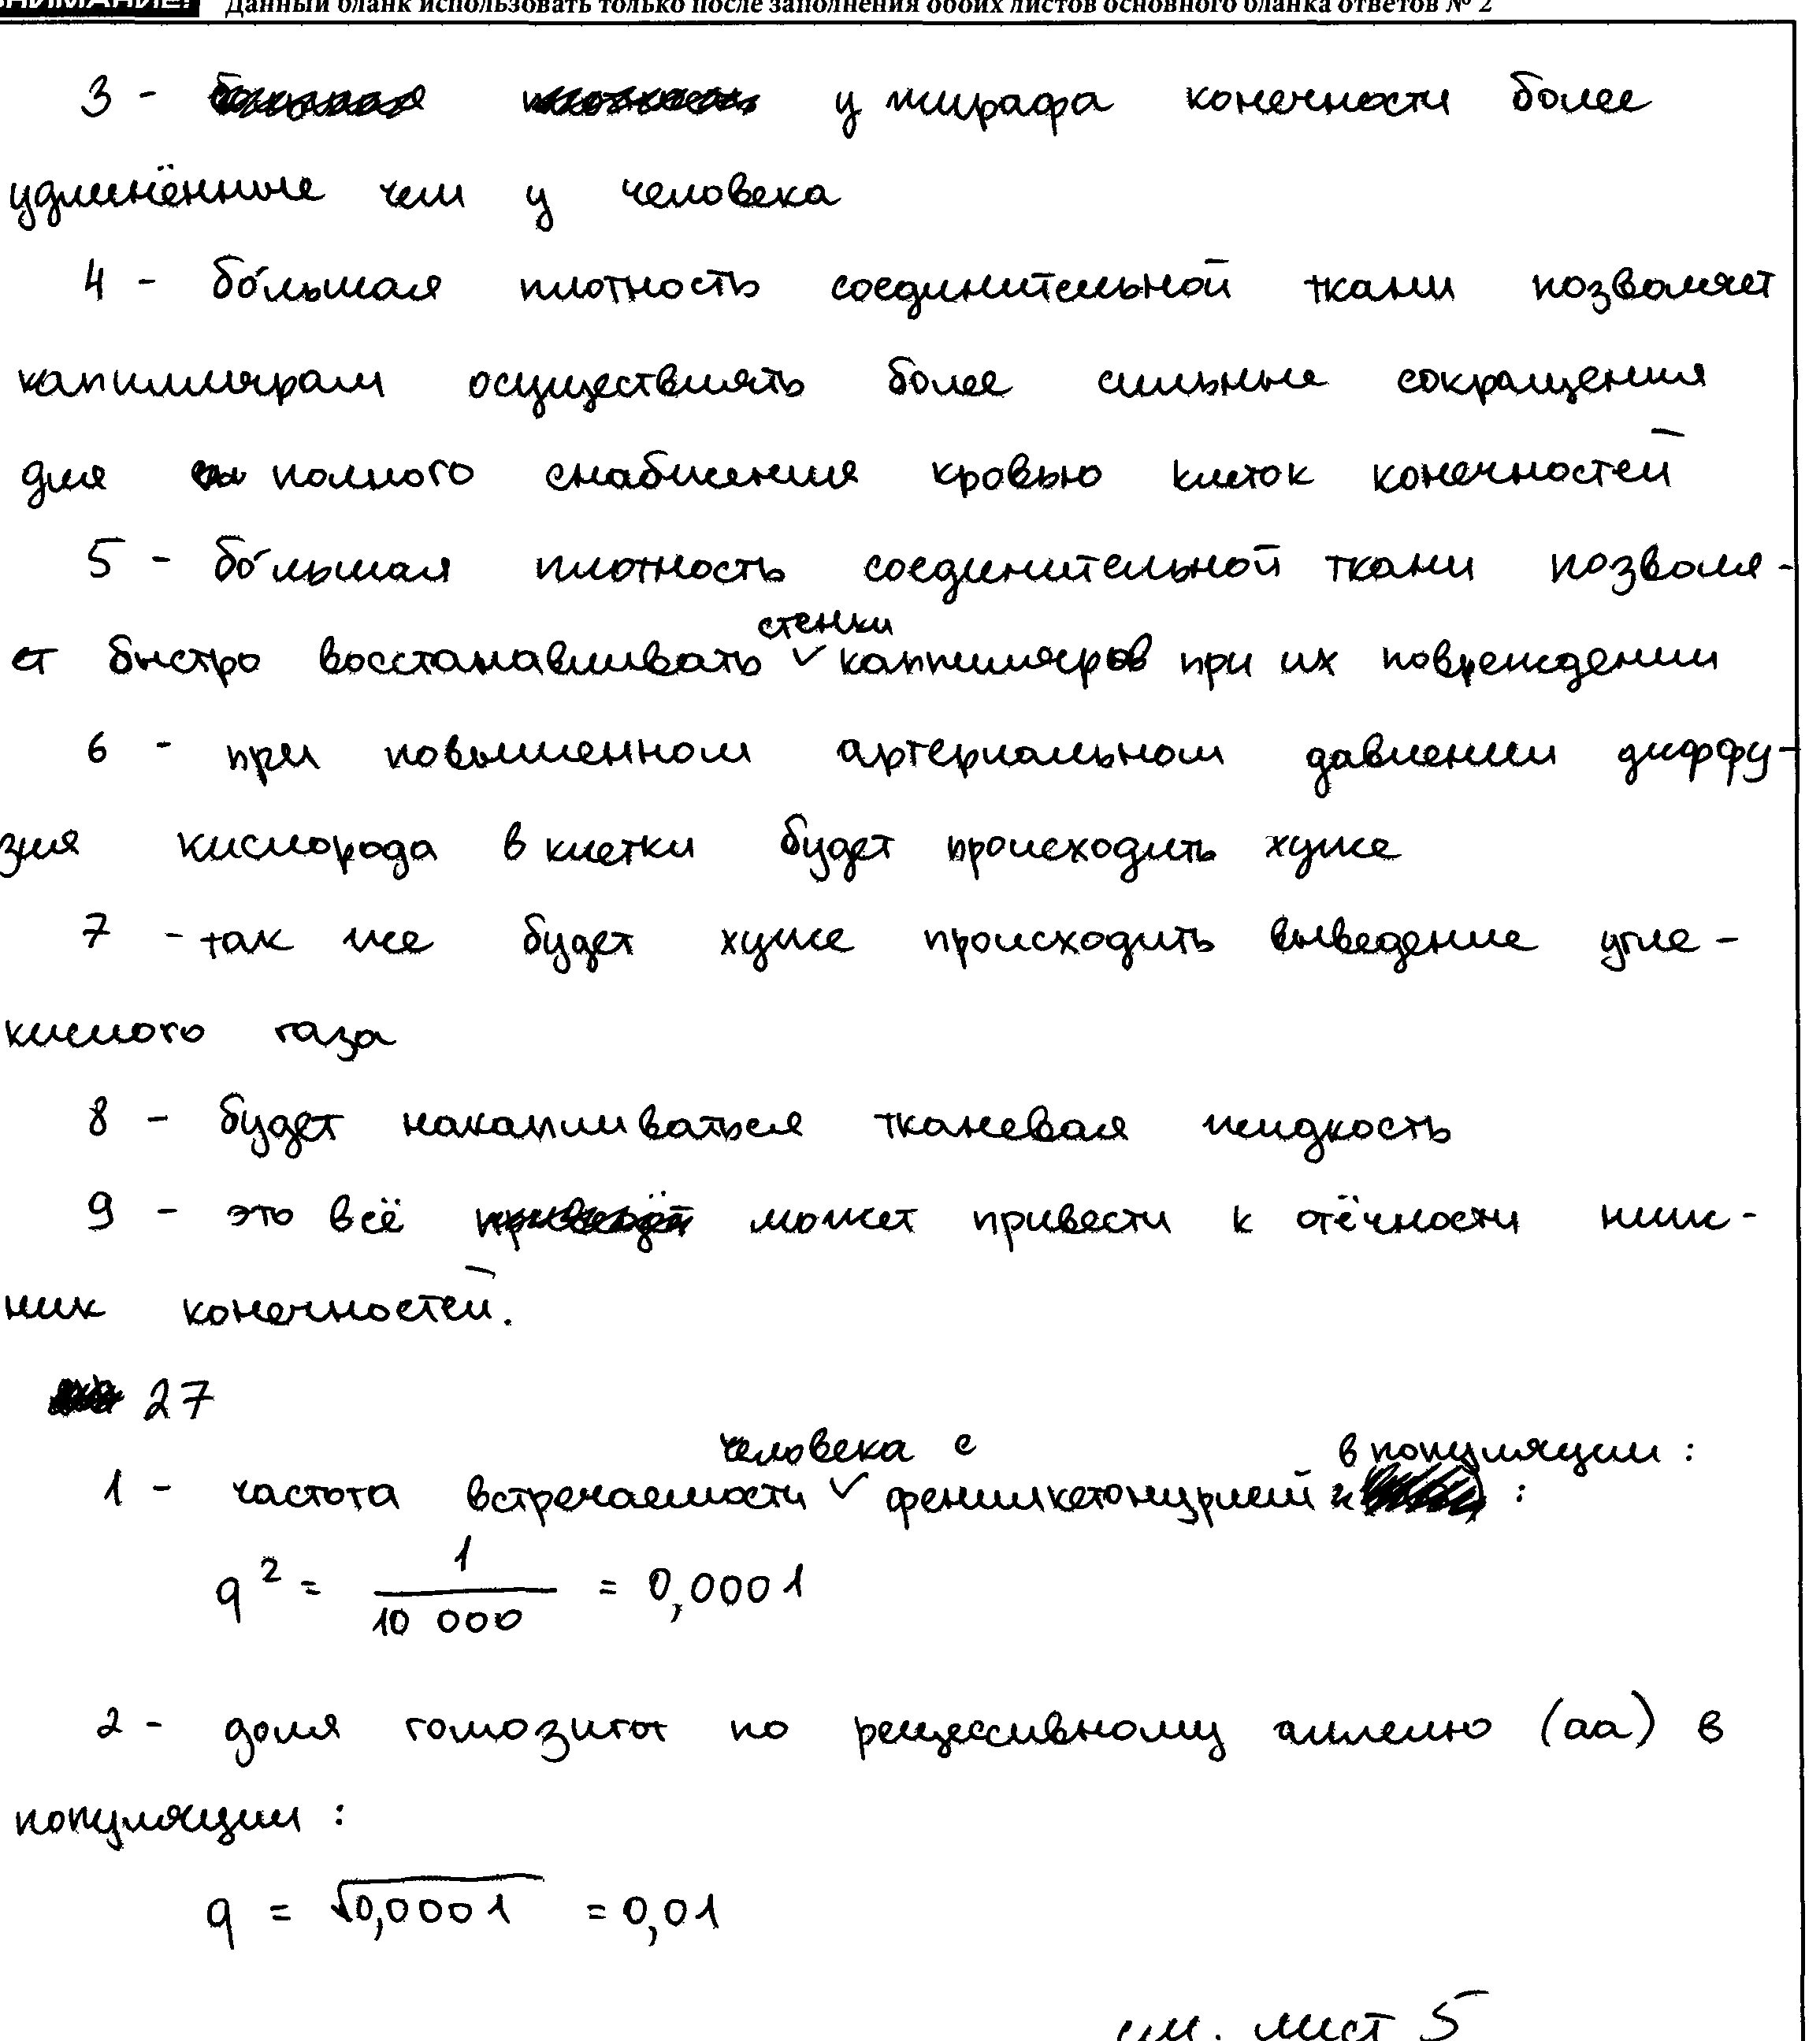 ВНИМАНИЕ! Данный бланк использовать только после заполнения обоих листов основного бланка ответов № 2
3 - у жирафа конечности более
удлинённые чем у человека
4 - бо́льшая плотность соединительной ткани позволяет
капиллярам осуществлять более сильные сокращения
для полного снабжения кровью клеток конечностей
5 - бо́льшая плотность соединительной ткани позволя-
ет быстро восстанавливать стенки каппиляров при их повреждении
6 - при повышенном артериальном давлении диффу-
зия кислорода в клетки будет происходить хуже
7 - так же будет хуже происходить выведение угле-
кислого газа
8 - будет накапливаться тканевая жидкость
9 - это всё может привести к отёчности ниж-
них конечностей.
27
1 - частота встречаемости человека с фенилкетонурией в популяции :
q² = 1/10 000 = 0,0001
2 - доля гомозигот по рецессивному аллелю (aa) в
популяции :
q = √0,0001 = 0,01
см. лист 5